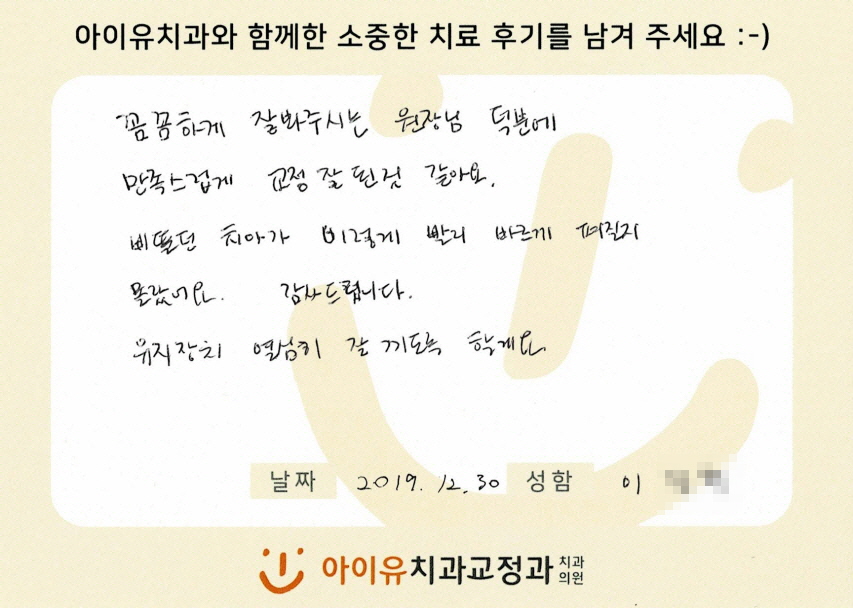 아이유치과와 함께한 소중한 치료 후기를 남겨 주세요 :-)
꼼꼼하게 잘봐주시는 원장님 덕분에
만족스럽게 교정 잘 된점 같아요.
삐뚤던 치아가 이렇게 빨리 바르게 펴질지
몰랐어요. 감사드립니다.
유지장치 열심히 잘 끼도록 할게요
날짜 2019. 12. 30 성함 이
아이유치과교정과 치과
의원